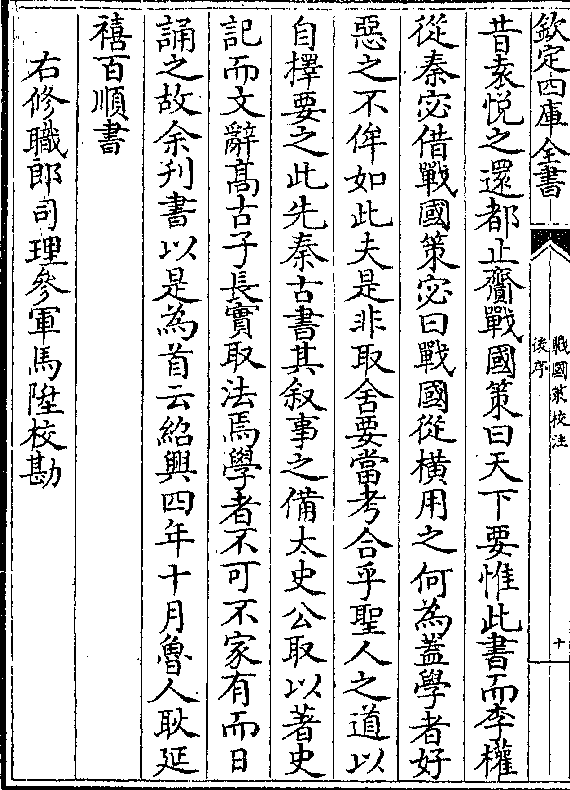 欽定四庫全書
戰國策校注
後序
十
昔袁悅之還都止齎戰國策曰天下要惟此書而李權
從秦宓借戰國策宓曰戰國從橫用之何為蓋學者好
惡之不侔如此夫是非取舍要當考合乎聖人之道以
自擇要之此先秦古書其叙事之備太史公取以著史
記而文辭髙古子長實取法焉學者不可不家有而日
誦之故余刋書以是為首云紹興四年十月魯人耿延
禧百順書
右修職郎司理參軍馬陞校勘